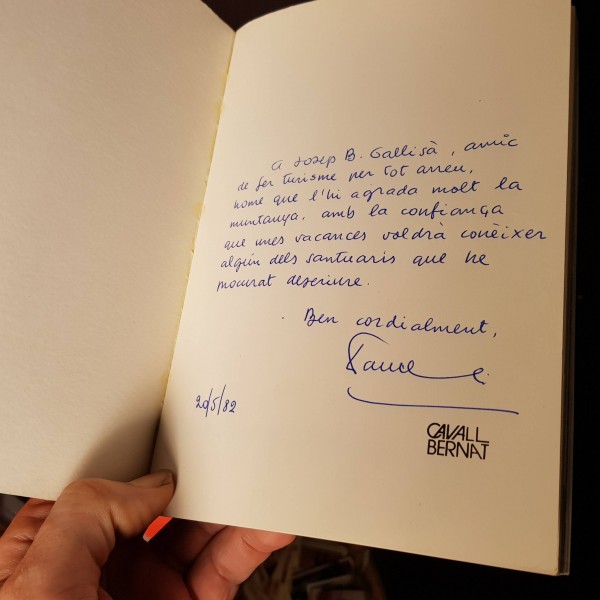 A Josep B. Gallisà, amic
de fer turisme per tot arreu,
home que l'hi agrada molt la
muntanya, amb la confiança
que unes vacances voldrà conèixer
algún dels santuaris que he
procurat descriure.
Ben cordialment,
20/5/82
CAVALL
BERNAT